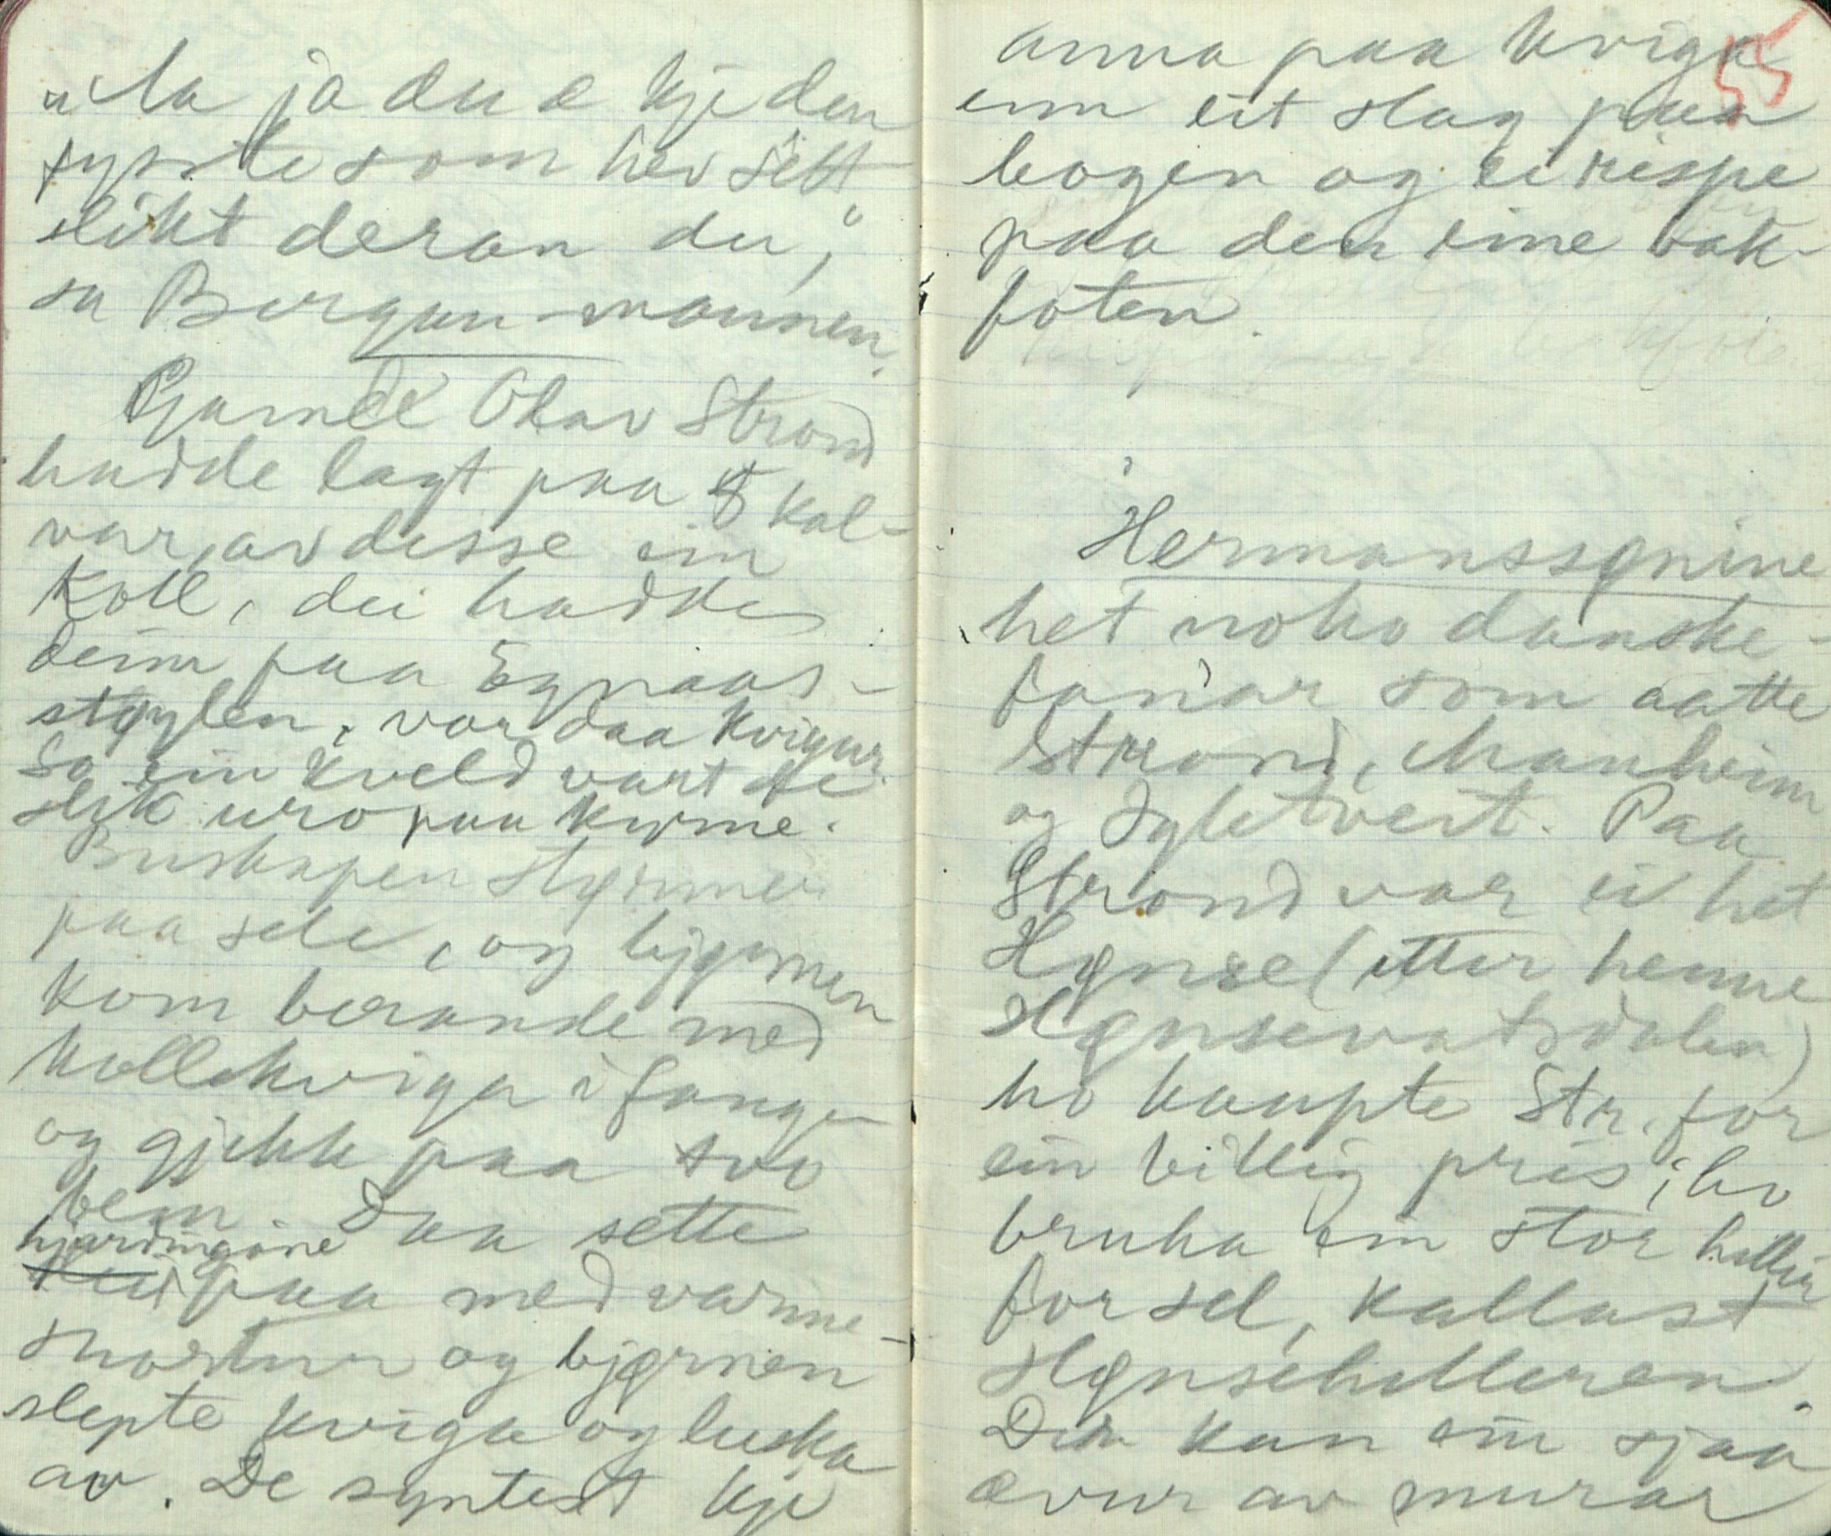 "Aa ja du e kje den
fysste som hev sétt
slikt deran du,"
sa Bergan-mannen.
Gamle Olav Strond
hadde lagt paa 8 kal-
var, av desse ein
Koll, dei hadde
deim paa Egnaas-
støylen, var daa kvigur.
So ein kveld vart de
slik uro paa kvine.
Buskapen styrmer
paa sele, og bjørnen
kom berande med
kollekviga i fange
og gjekk paa two
bein. Daa sette
hjuringane
paa med varme-
skortur og bjørnen
slepte kviga og luska
av. De syntest kje
55
anna paa kviga
enn eit slag paa
bogen og ei rispe
paa den eine bak-
foten.
Hermanssønine
het noko danske-
fanar som aatte
Strond, Manheim
og Sylvtveit. Paa
Strond var ei het
Hønse (etter henne
Hønsevatsdalen)
ho kaupte Str. for
ein billig pris; ho
bruka ein stor hillir
for sel, kallast
Hønsehilleren.
Der kan ein sjaa
øvur av murar